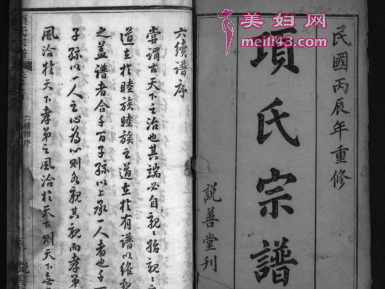 美妇网
www.meili43.com
民國丙辰年重修
項氏宗譜
說善堂刊
六續譜序
嘗謂古天下之治也其端必自親親始親
道立於睦族睦族之道立於有譜以維
之蓋譜者合千百子孫以上承一人者也千
子孫以一人之心為心則各親其親而孝弟
風洽於天下孝弟之風洽於天下則天下